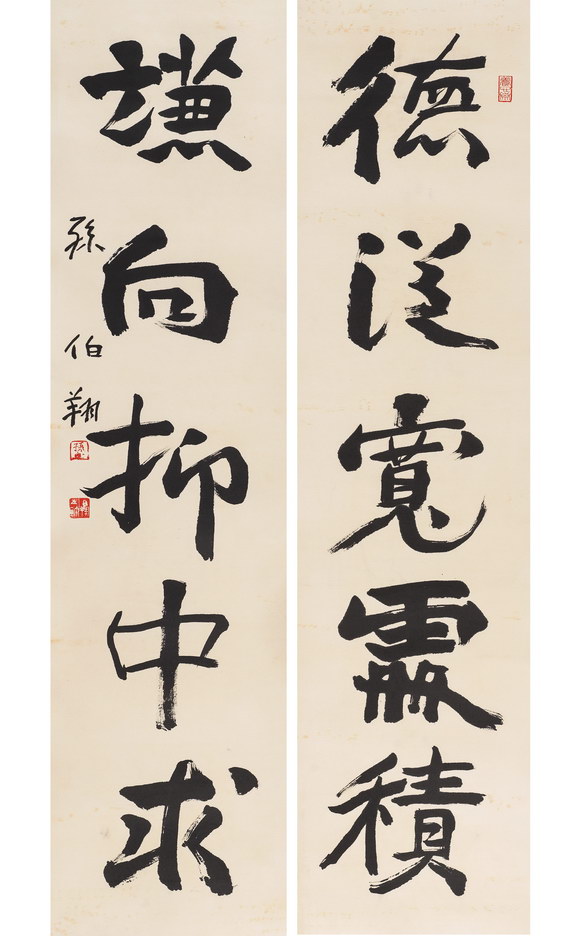 德從寬處積
謙向抑中求
孫伯翔